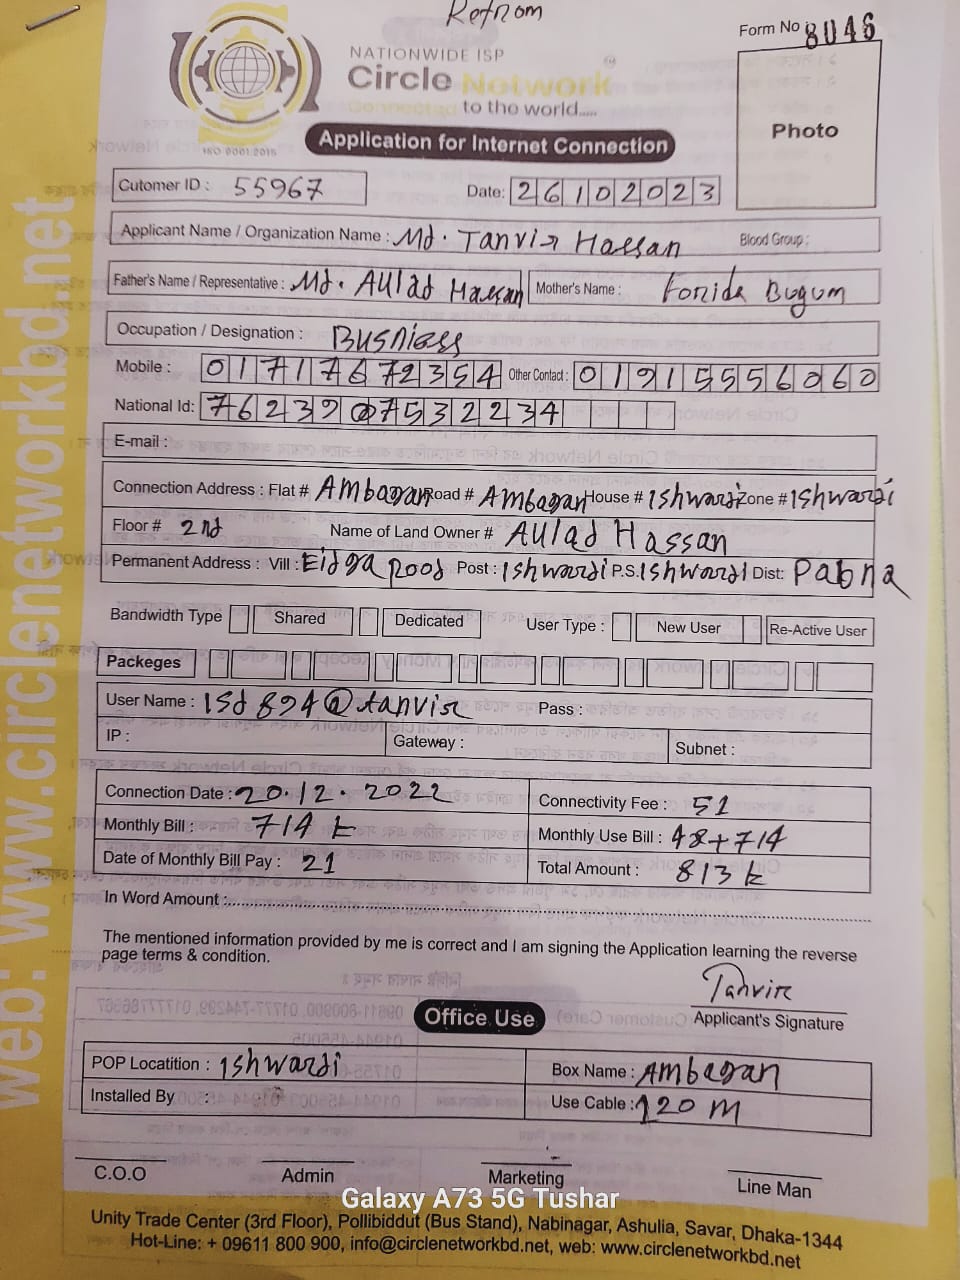 Refrom
Form No 8046
NATIONWIDE ISP
Circle Network
Connected to the world.....
ISO 9001:2015
Photo
Application for Internet Connection
Cutomer ID : 55967
Date: 26102023
Applicant Name / Organization Name : Md. Tanvir Hassan Blood Group :
Father's Name / Representative : Md. AUlad Hassan Mother's Name : Forida Bugum
Occupation / Designation : Busniess
Mobile : 01717672354 Other Contact : 01915556060
National Id: 7623907532234
E-mail :
Connection Address : Flat # Ambagan Road # Ambagan House # Ishwardi Zone # Ishwardi
Floor # 2nd Name of Land Owner # AUlad Hassan
Permanent Address : Vill : Eidga Rood Post : Ishwardi P.S. Ishwardi Dist: Pabna
Bandwidth Type Shared Dedicated User Type : New User Re-Active User
Packeges
User Name : ISd894@tanvir Pass :
IP : Gateway : Subnet :
Connection Date : 20.12.2022 Connectivity Fee : 51
Monthly Bill : 714 Monthly Use Bill : 48+714
Date of Monthly Bill Pay : 21 Total Amount : 813
In Word Amount :
The mentioned information provided by me is correct and I am signing the Application learning the reverse
page terms & condition.
Tanvir
Applicant's Signature
Office Use
POP Locatition : Ishwardi Box Name : Ambagan
Installed By : Use Cable : 120 m
C.O.O Admin Marketing Line Man
Galaxy A73 5G Tushar
Unity Trade Center (3rd Floor), Pollibiddut (Bus Stand), Nabinagar, Ashulia, Savar, Dhaka-1344
Hot-Line: + 09611 800 900, info@circlenetworkbd.net, web: www.circlenetworkbd.net
web: www.circlenetworkbd.net